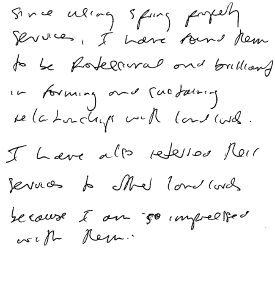 Since using spring property
services, I have found them
to be professional and brilliant
in forming and sustaining
relationships with landlords.
I have also referred their
services to other landlords
because I am so impressed
with them.